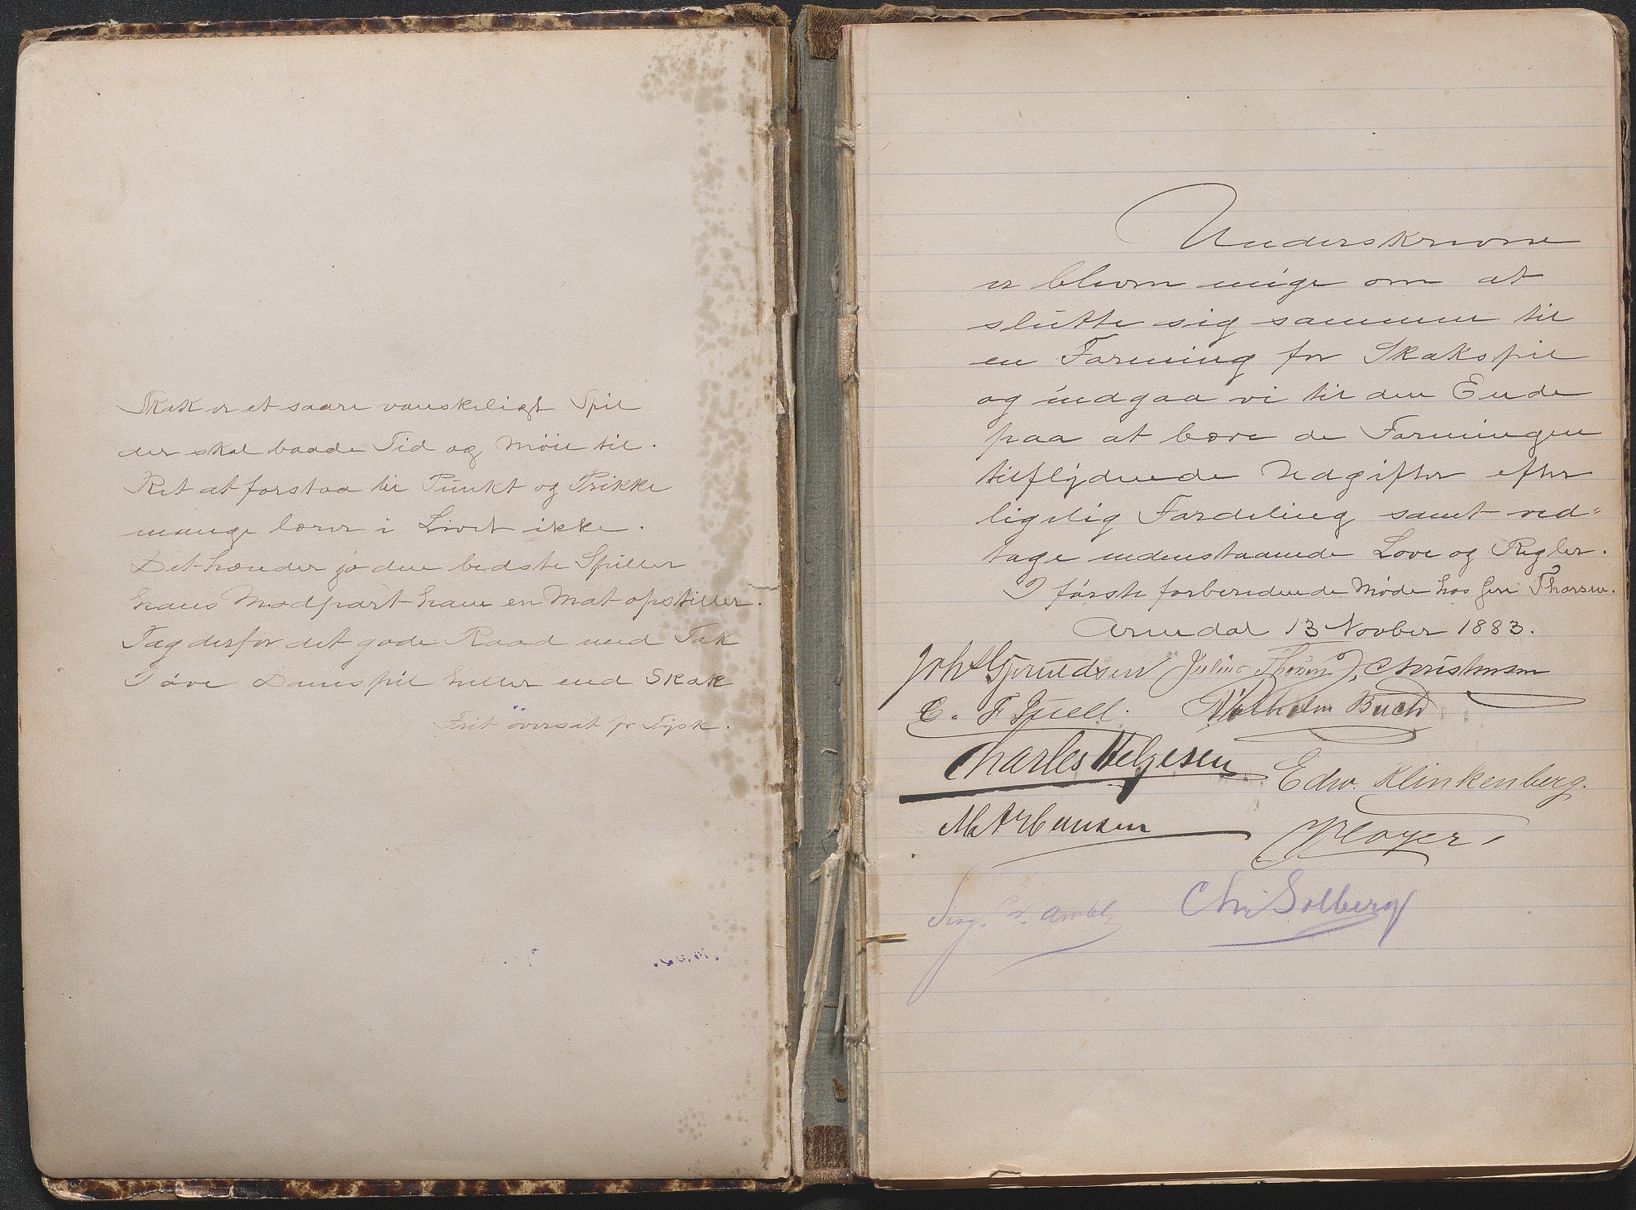 Skak er et saare vanskeligt Spil
der skal baade Tid og Møie til.
Ret at forstaa til Punkt og Prikke
mange lærer i Livet ikke.
Det hænder jo den bedste Spiller
hans Modpart ham en Mat opstiller.
Tag derfor det gode Raad med Tak
I øve Damspil heller end Skak
Frit översat fr Tysk.
Underskrevne
er bleven enige om at
slutte sig sammen til
en Forening for Skakspil
og indgaa vi til den Ende
paa at bære de Foreningen
tilflydende Udgifter efter
ligelig Fordeling samt ved=
tage nedenstaaende Love og Regler.
I første forberedende Møde hos Thorsen.
Arendal 13 Novber 1883.
Joh Gjerudsen Julius Thorsen J. Christensen
C. F Juell. Wilhelm Buch
Charles Helgesen Edw. Klinkenberg.
Hansen Kloyer
Chr Solberg